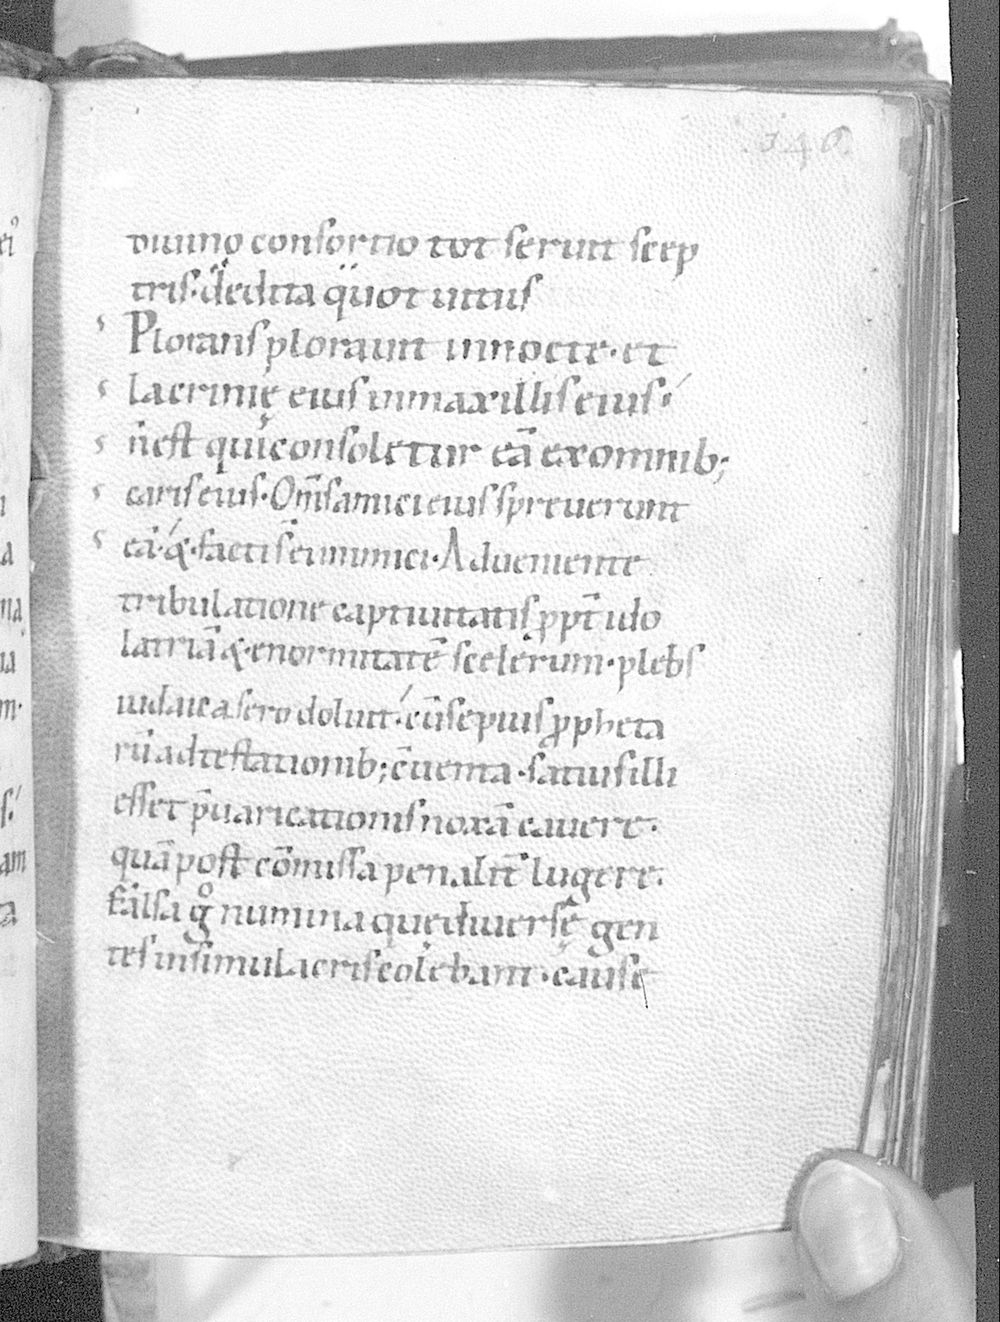 .146.
diuino consortio tot seruit scep
tris· dedita quot uitiis
Plorans plorauit in nocte· et
lacrimę eius in maxillis eius·
ñ est qui consoletur eā ex omnib;
caris eius· Om̄s amici eius spreuerunt
eā· & facti s̄ ei inimici· Adueniente
tribulatione captiuitatis ꝓpt̄ ido
latriā & enormitatē scelerum· plebs
iudaica sero doluit· cū sepius ꝓpheta
rū adtestationib; c̄uenta· satius illi
esset p̄uaricationis noxā cauere·
quā post cōmissa penalit̄ lugere.
Falsa gͦ numina que diuersę gen
tes in simulacris colebant· causę